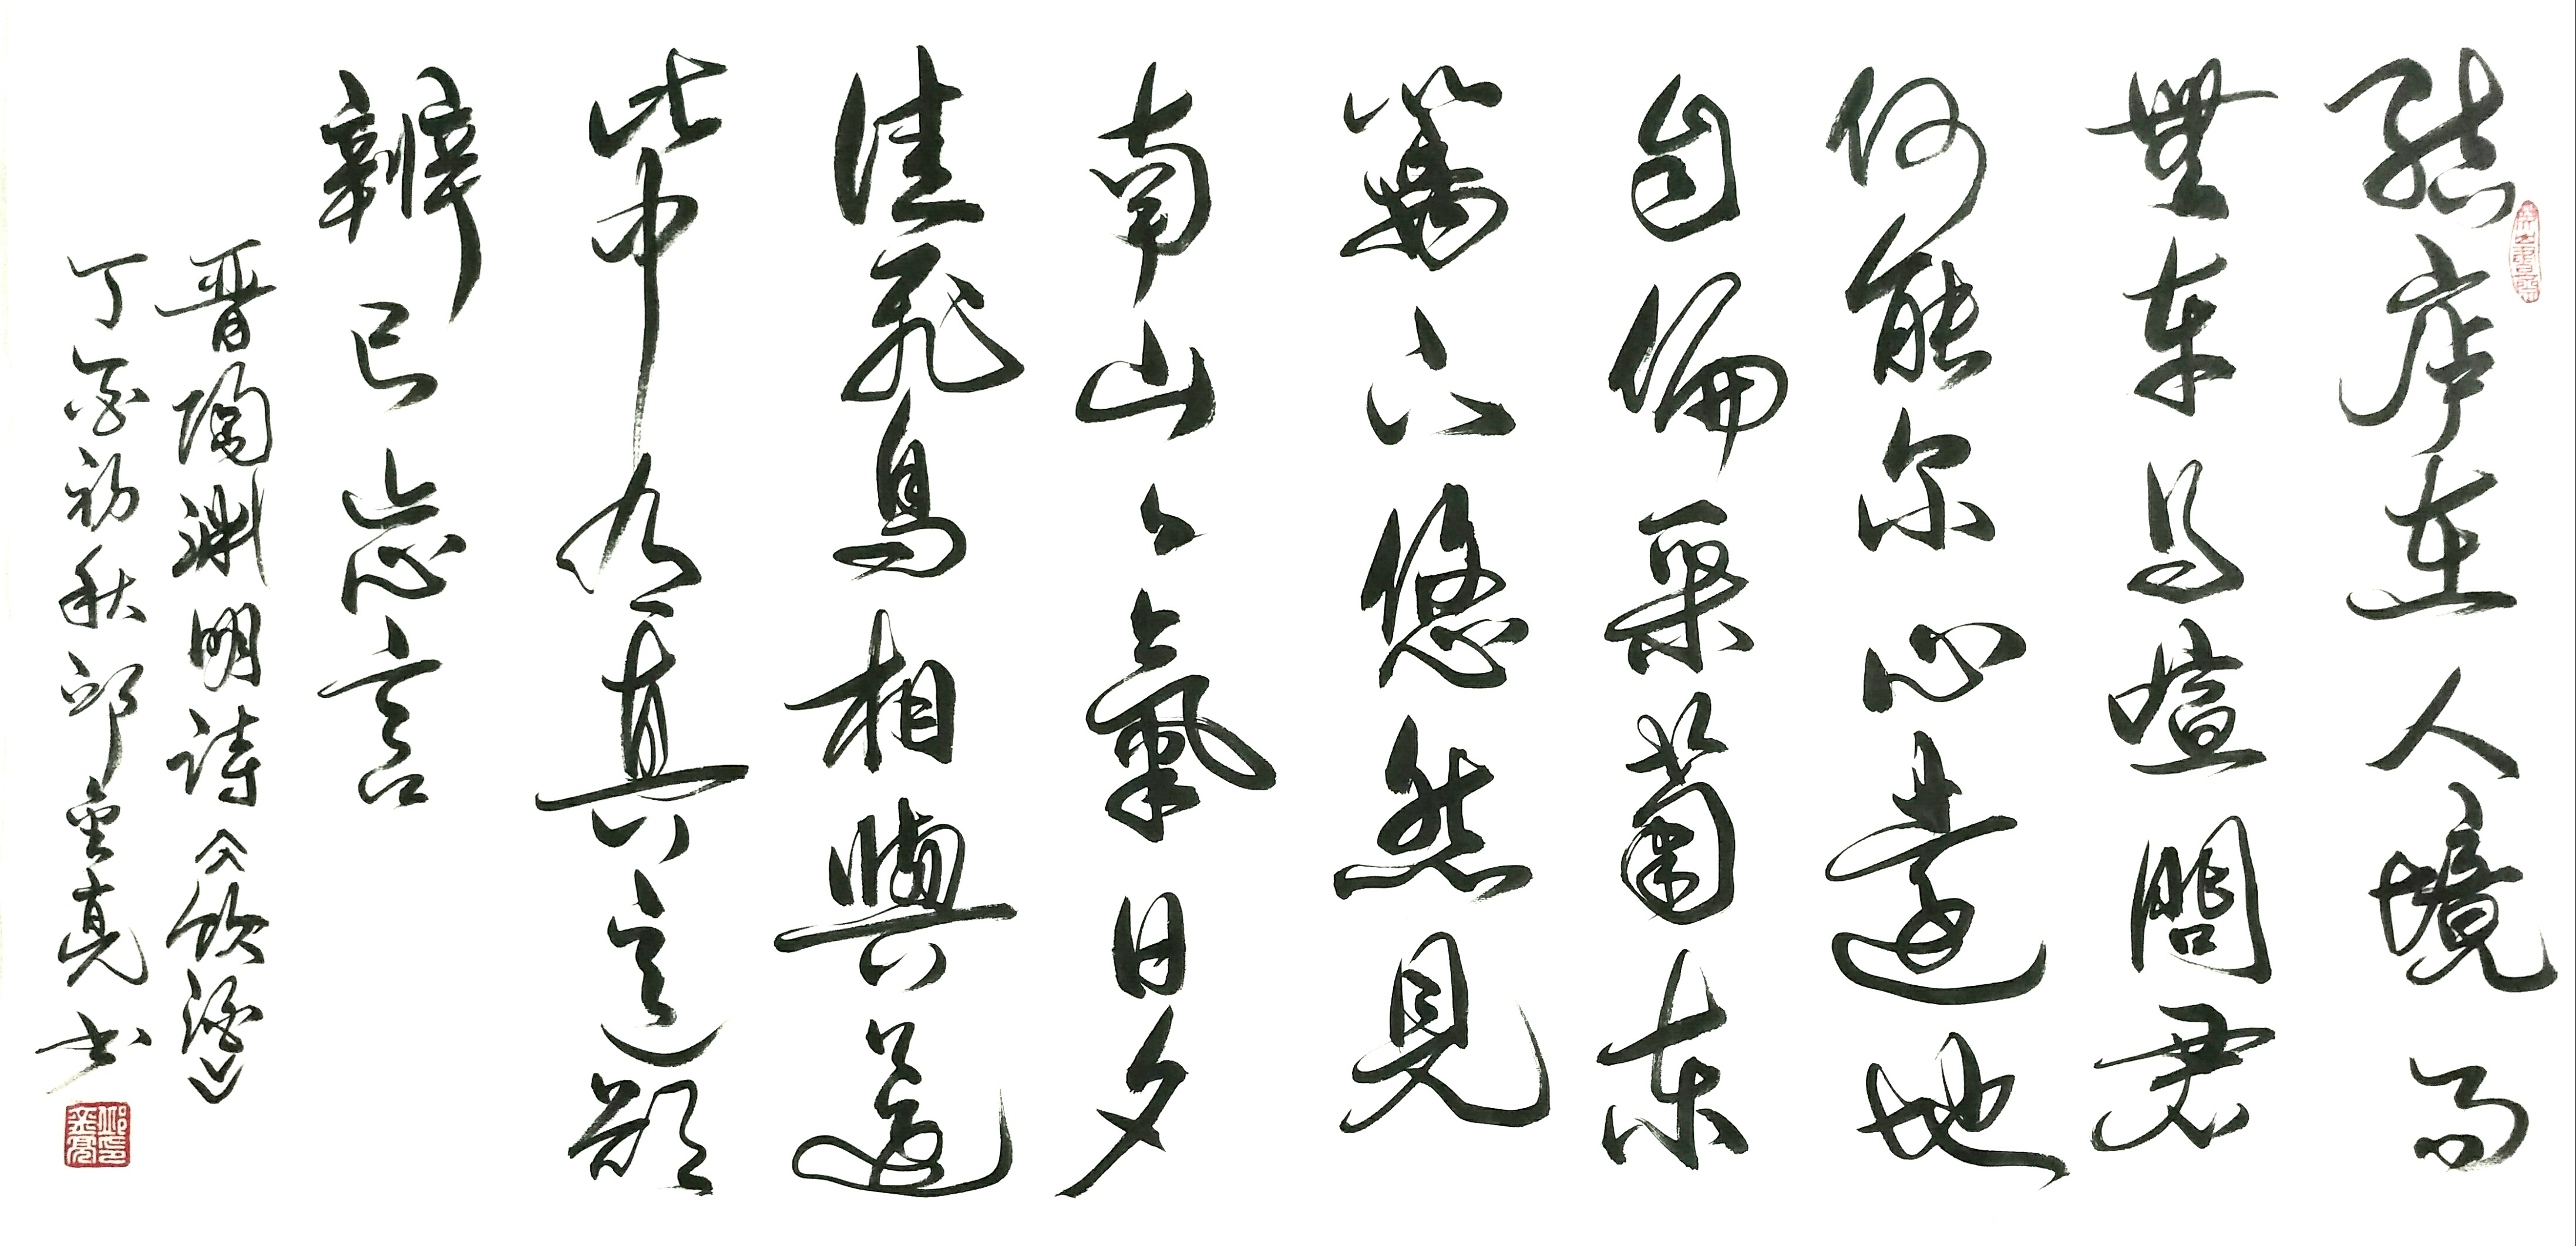 結廬在人境而
無车马喧問君
何能尔心遠地
自偏采菊东
籬下悠然見
南山々氣日夕
佳飛鳥相與還
此中有真意欲
辨已忘言
晋陶渊明詩飲酒
丁酉初秋邱金亮书